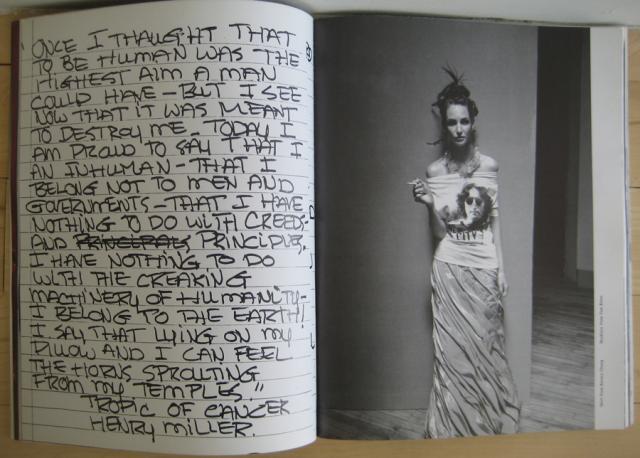 ONCE I THAUGHT THAT
TO BE HUMAN WAS THE
HIGHEST AIM A MAN
COULD HAVE – BUT I SEE
NOW THAT IT WAS MEANT
TO DESTROY ME. TODAY I
AM PROUD TO SAY THAT I
AM INHUMAN – THAT I
BELONG NOT TO MEN AND
GOVERNMENTS – THAT I HAVE
NOTHING TO DO WITH CREEDS
AND PRINCIPALS PRINCIPLES.
I HAVE NOTHING TO DO
WITH THE CREAKING
MACHINERY OF HUMANITY –
I BELONG TO THE EARTH!
I SAY THAT LYING ON MY
PILLOW AND I CAN FEEL
THE HORNS SPROUTING
FROM MY TEMPLES."
TROPIC OF CANCER
HENRY MILLER.